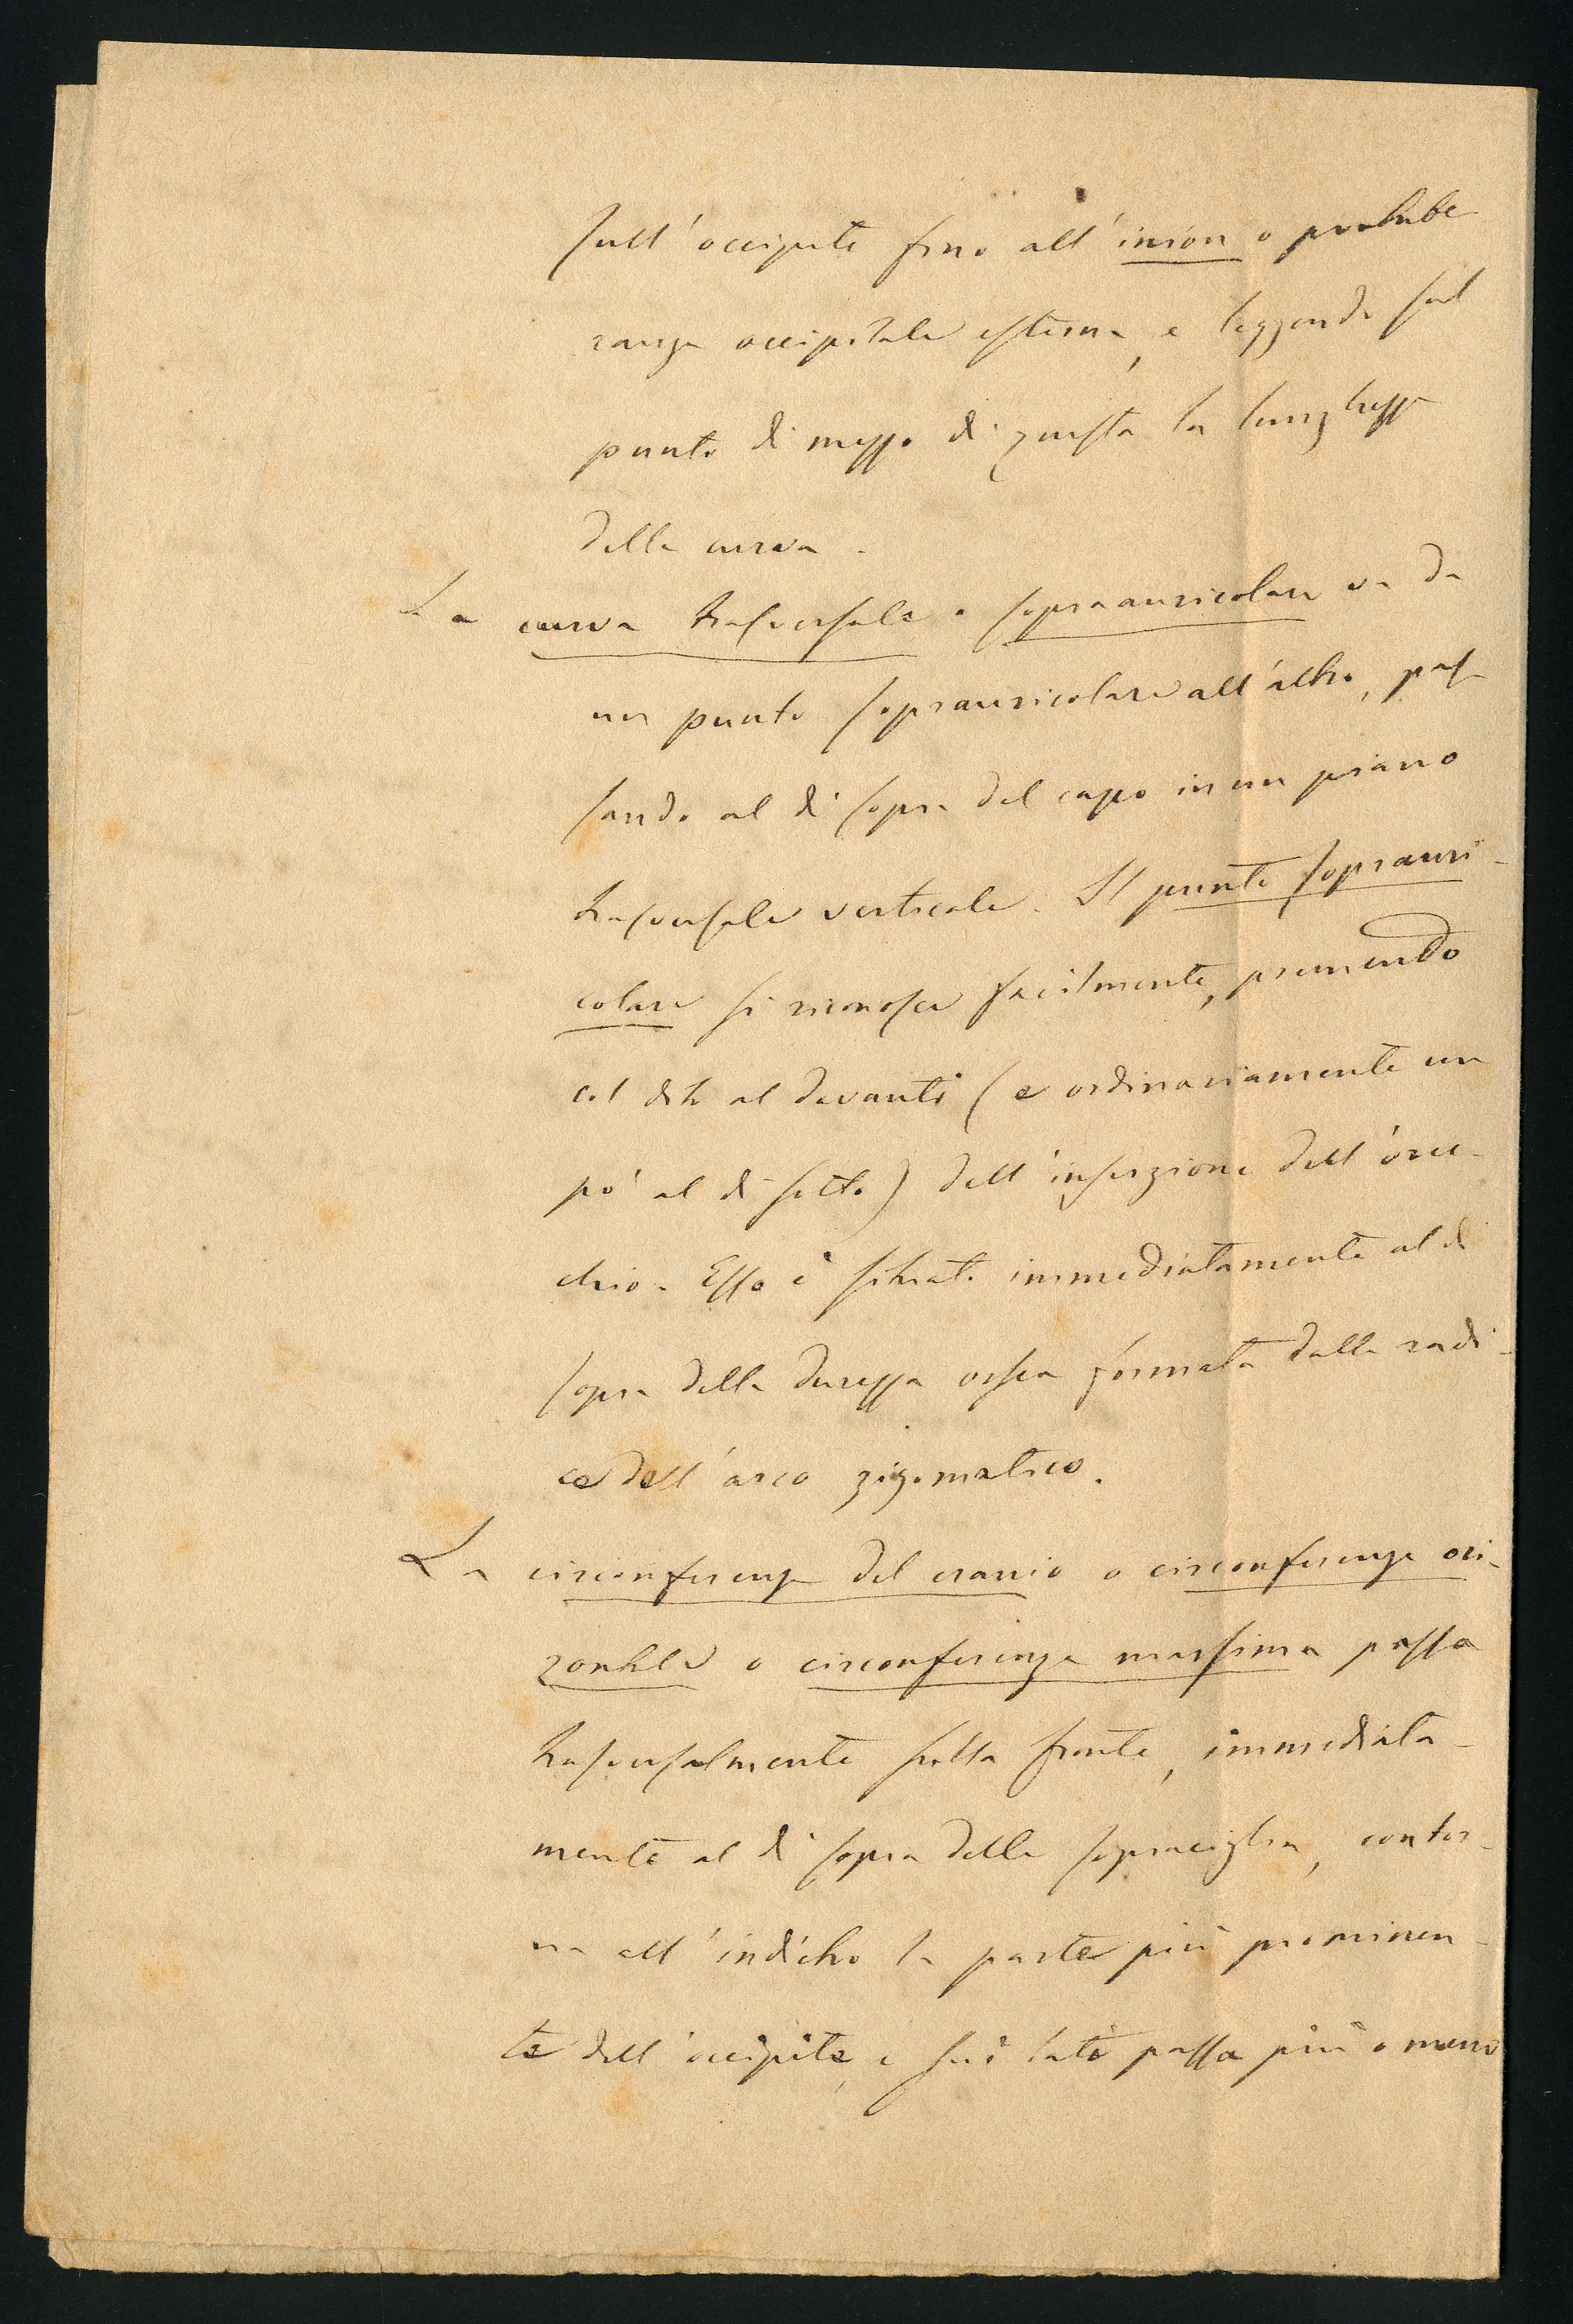 sull'occipite fino all'inion o protube
ranza occipitale esterna, e leggendo sul
punto di mezzo di questa la lunghezza
della curva.
La curva trasversale o sopraauricolare va da
un punto sopraauricolare all'altro, pas
sando al di sopra del capo in un piano
trasversale verticale. Il punto sopraauri-
colare si riconosce facilmente, premendo
col dito al davanti (e ordinariamente un
po' al di sotto) dell'inserzione dell'orec-
chio. Esso è situato immediatamente al di
sopra della durezza ossea formata dalla radi-
ce dell'arco zigomatico.
La circonferenza del cranio o circonferenza ori-
zontale o circonferenza massima passa
trasversalmente sulla fronte, immediata-
mente al di sopra delle sopraciglia, contor-
na all'indietro la parte più prominen-
te dell'occipite, e sui lati passa più o meno